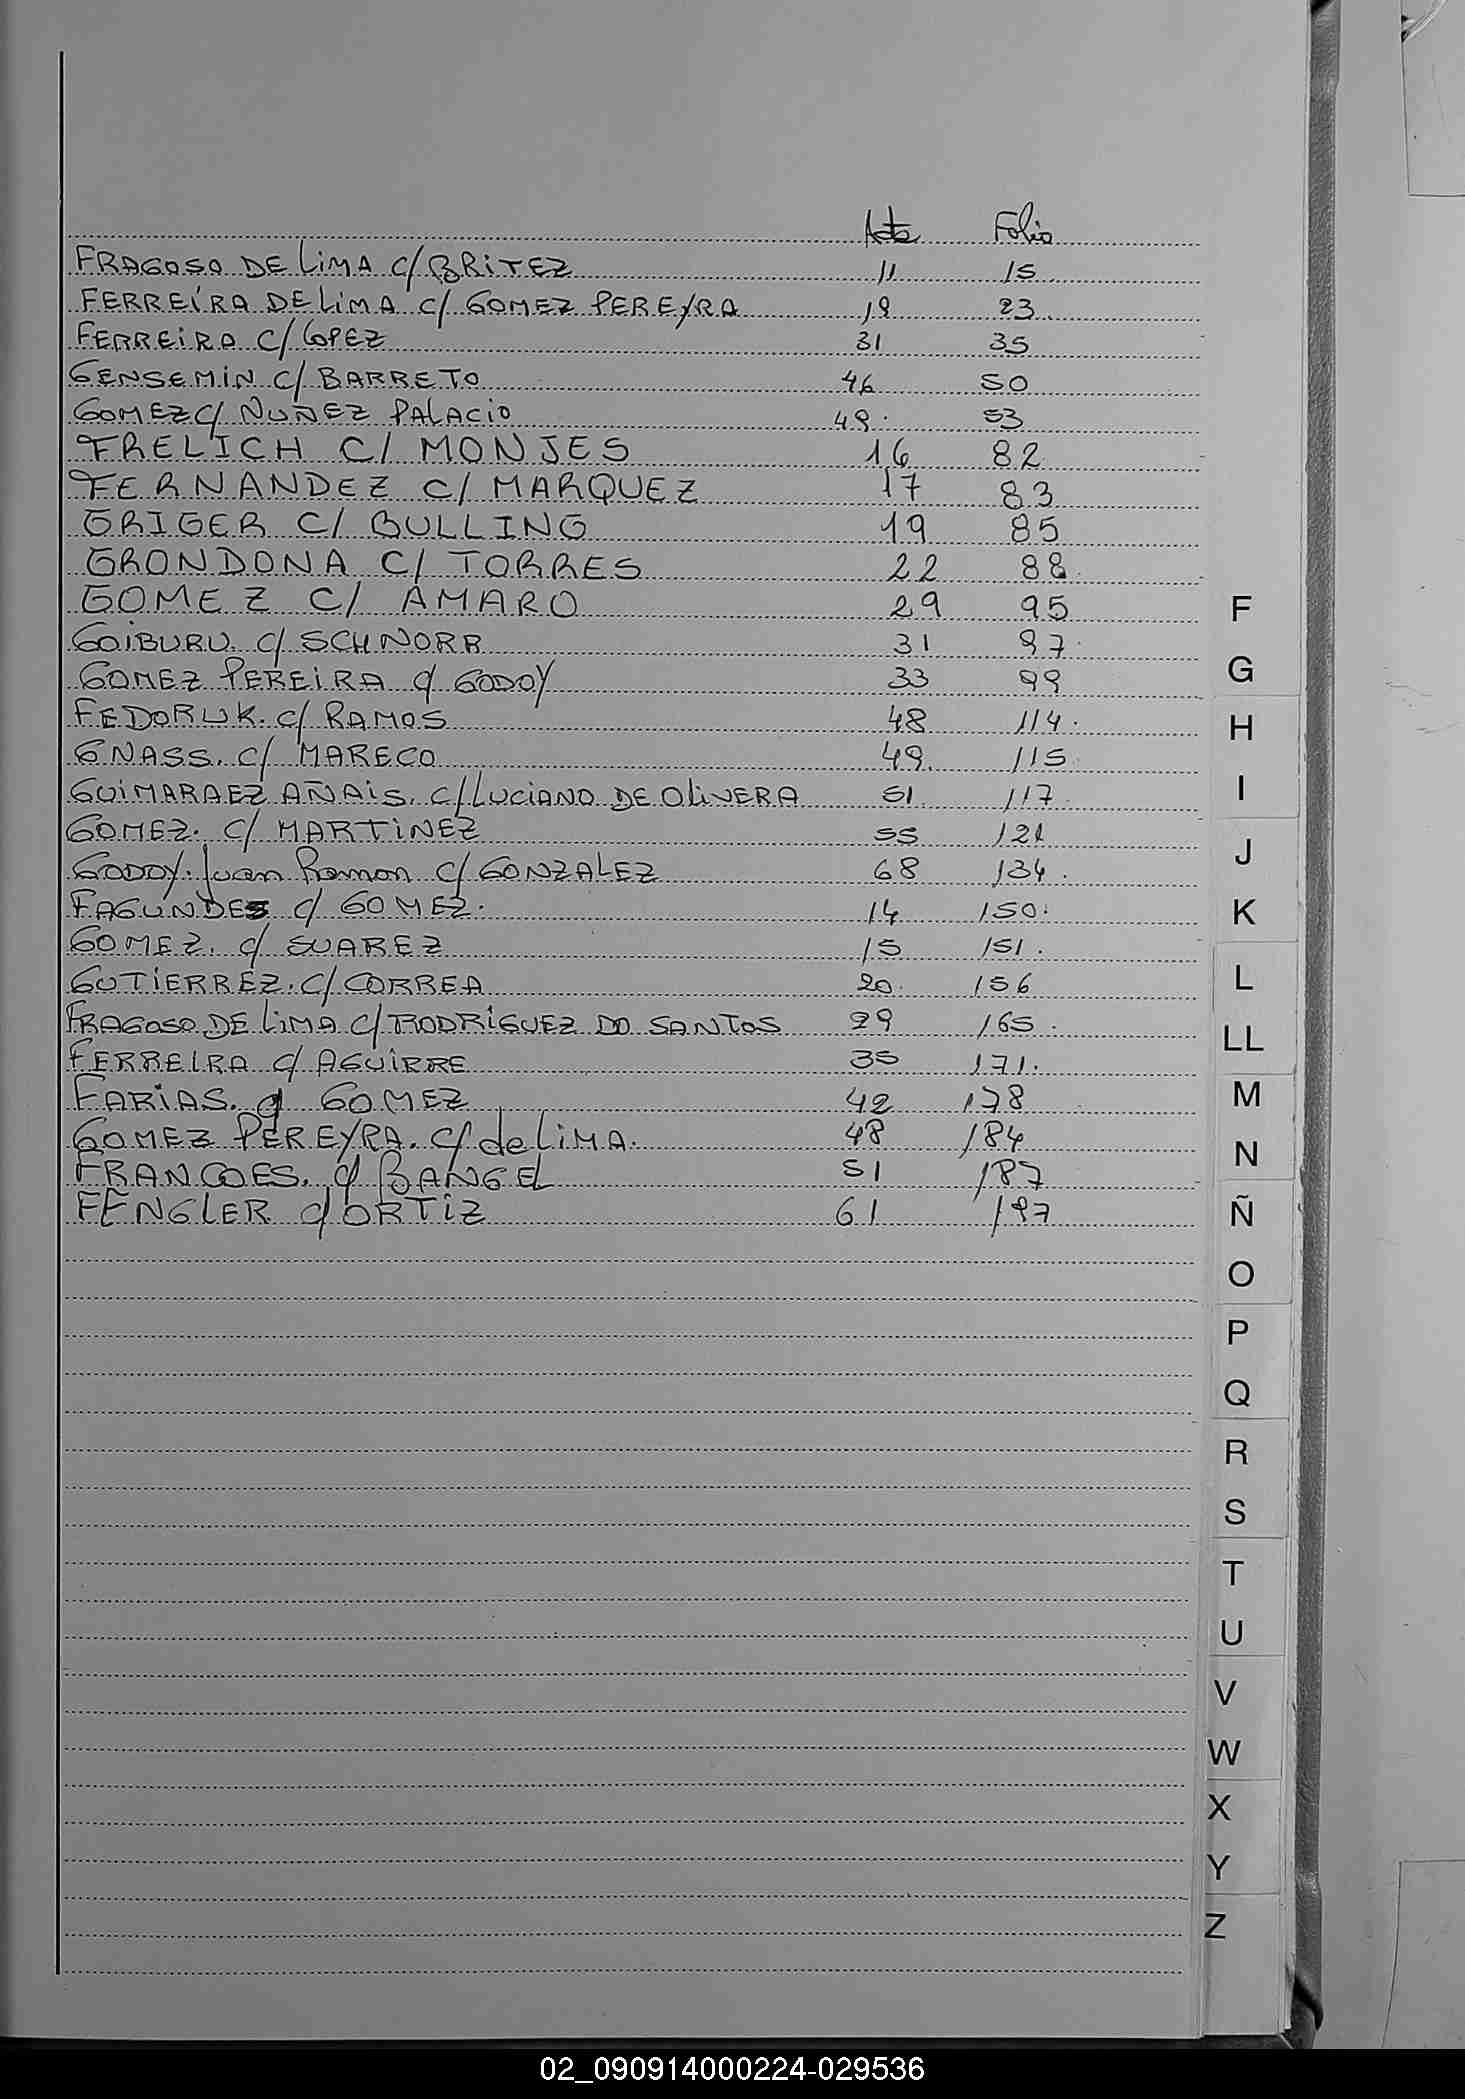 Acta Folio
FRAGOSO DE LiMA C/ BRiTEZ 11 15
FERREiRA DE LiMA C/ GOMEZ PEREYRA 19 23
FERREiRA C/ LOPEZ 31 35
GENSEMiN C/ BARRETO 46 50
GOMEZ C/ NUÑEZ PALACiO 49. 53
FRELICH C/ MONJES 16 82
FERNANDEZ C/ MARQUEZ 17 83
GRIGER C/ BULLING 19 85
GRONDONA C/ TORRES 22 88
GOMEZ C/ AMARO 29 95
GOiBURU. C/ SCHNORR 31 97
GOMEZ PEREiRA C/ GODOY 33 99
FEDORUK. C/ RAMOS 48 114.
GNASS. C/ MARECO 49. 115
GUiMARAEZ AÑAiS. C/ LUCiANO DE OLiVERA 51 117
GOMEZ. C/ MARTiNEZ 55 121
GODOY. Juan Ramon C/ GONZALEZ 68 134.
FAGUNDES C/ GOMEZ. 14 150.
GOMEZ. C/ SUAREZ 15 151.
GUTiERREZ. C/ CORREA 20. 156
FRAGOSO DE LiMA C/ RODRiGUEZ DO SANTOS 29 165.
FERREIRA C/ AGUiRRE 35 171.
FARiAS. C/ GOMEZ 42 178
GOMEZ PEREYRA. C/ de LiMA. 48 184
FRANCOES. C/ RANGEL 51 187
FENGLER C/ ORTiZ 61 197
F
G
H
I
J
K
L
LL
M
N
Ñ
O
P
Q
R
S
T
U
V
W
X
Y
Z
02_090914000224-029536